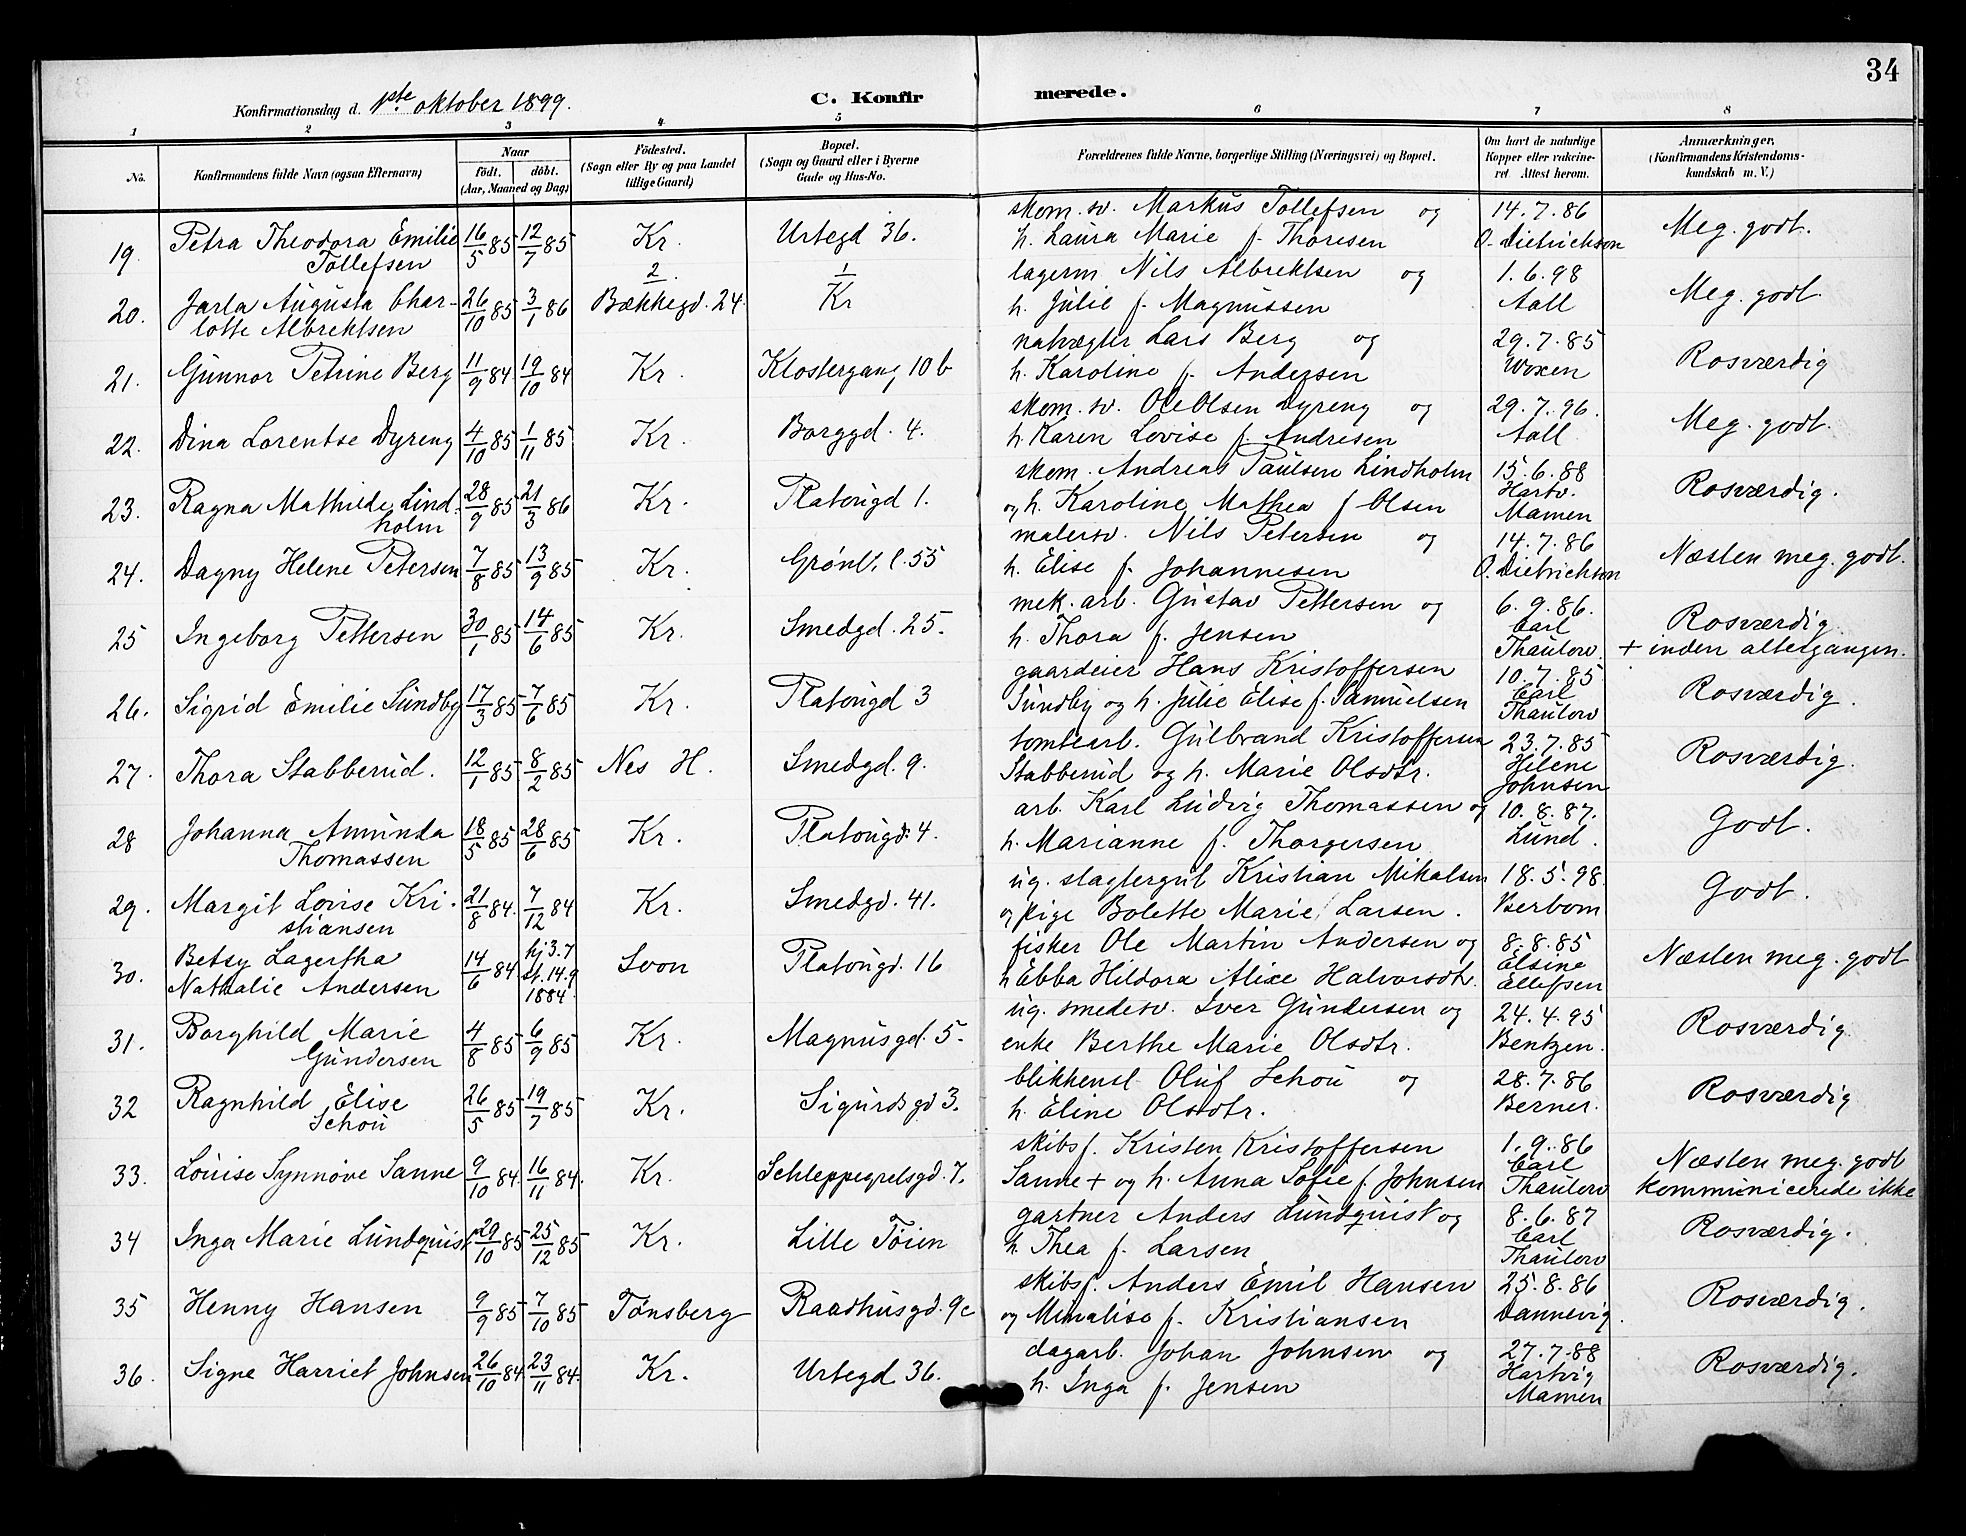 34
Konfirmationsdag d. 1ste oktober 1899. C. Konfirmerede.
1 2 3 4 5 6 7 8
No. Konfirmandens fulde Navn (ogsaa Efternavn) Naar født. døbt. (Aar, Maaned og Dag) Fødested. (Sogn eller By og paa Landet tillige Gaard) Bopæl. (Sogn og Gaard eller i Byerne Gade og Hus-No. Forældrenes fulde Navne, borgerlige Stilling (Næringsvei) og Bopæl. Om havt de naturlige Kopper eller vaccineret. Attest herom. Anmærkninger. (Konfirmandens Kristendomskundskab m. V.)
19. Petra Theodora Emilie Tollefsen 16/5 85 12/7 85 Kr. Urtegd 36. skom. sv. Markus Tollefsen og h. Laura Marie f. Thoresen 14.7.86 O. Dietrichson Meg. godt.
20. Jarla Augusta Charlotte Albrektsen 26/10 85 3/1 86 2. Bækkegd. 24 1 Kr lagerm. Nils Albrektsen og h. Julie f. Magnussen 1.6.98 Aall Meg. godt.
21. Gunnor Petrine Berg 11/9 84 19/10 84 Kr. Klostergang 10 b natvægter Lars Berg og h. Karoline f. Andersen 29.7.85 Woxen Rosværdig
22. Dina Lorentse Dyreng 4/10 85 1/11 85 Kr. Borggd. 4. skom. sv. Ole Olsen Dyreng og h. Karen Lovise f. Andresen 29.7.96. Aall Meg. godt.
23. Ragna Mathilde Lindholm 28/9 85 21/3 86 Kr. Platougd 1. skom. Andreas Paulsen Lindholm og h. Karoline Mathea f Olsen 15.6.88 Hartv. Mamen Rosværdig.
24. Dagny Helene Petersen 7/8 85 13/9 85 Kr. Grønl. l. 55 malersv. Nils Petersen og h. Elise f. Johannesen 14.7.86 O. Dietrichson Næsten meg. godt.
25 Ingeborg Pettersen 30/1 85 14/6 85 Kr. Smedgd. 25. mek. arb. Gustav Pettersen og h. Thora f. Jensen 6.9.86. Carl Thaulow. Rosværdig. + inden altergangen.
26. Sigrid Emilie Sundby 17/3 85 7/6 85 Kr. Platougd 3 gaardeier Hans Kristoffersen Sundby og h. Julie Elise f. Samuelsen 10.7.85 Carl Thaulow Rosværdig.
27. Thora Stabberud. 12/1 85 8/2 85 Nes H. Smedgd. 9. tomtearb. Gulbrand Kristoffersen Stabberud og h. Marie Olsdtr. 23.7.85 Helene Johnsen Rosværdig.
28 Johanna Amunda Thomassen 18/5 85 28/6 85 Kr. Platougd. 4. arb. Karl Ludvig Thomassen og h. Marianne f. Thorgersen 10.8.87. Lund. Godt.
29. Margit Lovise Kristiansen 21/8 84. 7/12 84 Kr. Smedgd. 41. ug. slagtergut Kristian Mikalsen og pige Bolette Marie Larsen. 18.5.98. Berbom Godt.
30. Betsy Lagertha Nathalie Andersen 14/6 84 hj 3.7 st. 14.9 1884. Svon Platougd. 16 fisker Ole Martin Andersen og h Ebba Hildora Alice Halvorsdtr. 8.8.85 Elsine Ellefsen Næsten meg. godt
31. Borghild Marie Gundersen 4/8 85 6/9 85 Kr. Magnusgd. 5. ug. smedesv. Iver Gundersen og enke Berthe Marie Olsdtr. 24.4.95 Bentzen. Rosværdig.
32 Ragnhild Elise Schou 26/5 85 19/7 85 Kr. Sigurdsgd 3. blikkensl. Oluf Schou og h. Eline Olsdtr. 28.7.86 Berner. Rosværdig
33. Louise Synnøve Sanne 9/10 84. 16/11 84. Kr. Schleppegrelsgd. 7. skibsf. Kristen Kristoffersen Sanne + og h. Anna Sofie f. Johnsen 1.9.86 Carl Thaulow Næsten meg. godt kommunicerede ikke
34 Inga Marie Lundquist 29/10 85 25/12 85 Kr. Lille Tøien gartner Anders Lundquist og h. Thea f. Larsen 8.6.87 Carl Thaulow Rosværdig.
35 Henny Hansen 9/9 85 7/10 85 Tønsberg Raadhusgd. 9c skibsf. Anders Emil Hansen og Minalise f. Kristiansen 25.8.86 Dannevig. Rosværdig.
36. Signe Harriet Johnsen 26/10 84 23/11 84. Kr. Urtegd 36. dagarb. Johan Johnsen og h. Inga f. Jensen 27.7.88 Hartvig Mamen Rosværdig.